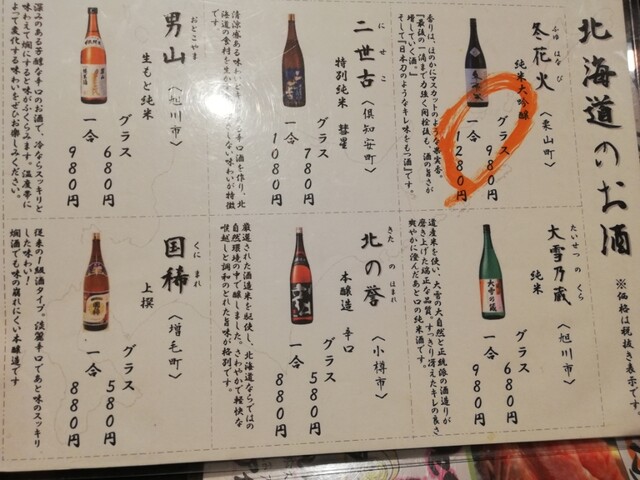 北海道のお酒
※価格は税抜き表示です
ふゆはなび
冬花火
〈栗山町〉
純米大吟醸
グラス 980円
一合 1280円
香りは、ほのかにマスカットのような果実香。
「最後の一滴まで力強く開栓後も、酒の旨さが
増していく酒。」
そして「日本刀のようなキレ味をもつ酒」です。
にせこ
二世古
〈倶知安町〉
特別純米 彗星
グラス 780円
一合 1080円
おとこやま
男山
〈旭川市〉
生もと純米
グラス 680円
一合 980円
深みのある芳醇な辛口のお酒で、冷ならスッキリと
味わえて燗にすると味がふくらみます。温度帯に
よって変化する味わいをぜひお楽しみください。
たいせつのくら
大雪乃蔵
〈旭川市〉
純米
大雪の蔵
グラス 680円
一合 980円
道産米を使い、大雪の大自然と正統派の酒造りが
磨き上げた端正な品質。すっきり冴えたキレの良さ
爽やかに澄んだあと口の純米酒です。
きたのほまれ
北の誉
〈小樽市〉
本醸造 辛口
グラス 580円
一合 880円
厳選された酒造米を使し、北海道ならではの
自然環境の中で醸しました。さわやかで軽快な
喉越しと調和のとれた旨味が格別です。
くにまれ
国稀
〈増毛町〉
上撰
グラス 580円
一合 880円
従来の1級酒タイプ。淡麗辛口であと味のスッキリ
した味わい！
燗酒でも味の崩れにくい本醸造です